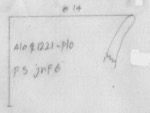 # 14
A10R1221-P10
FS JNFB